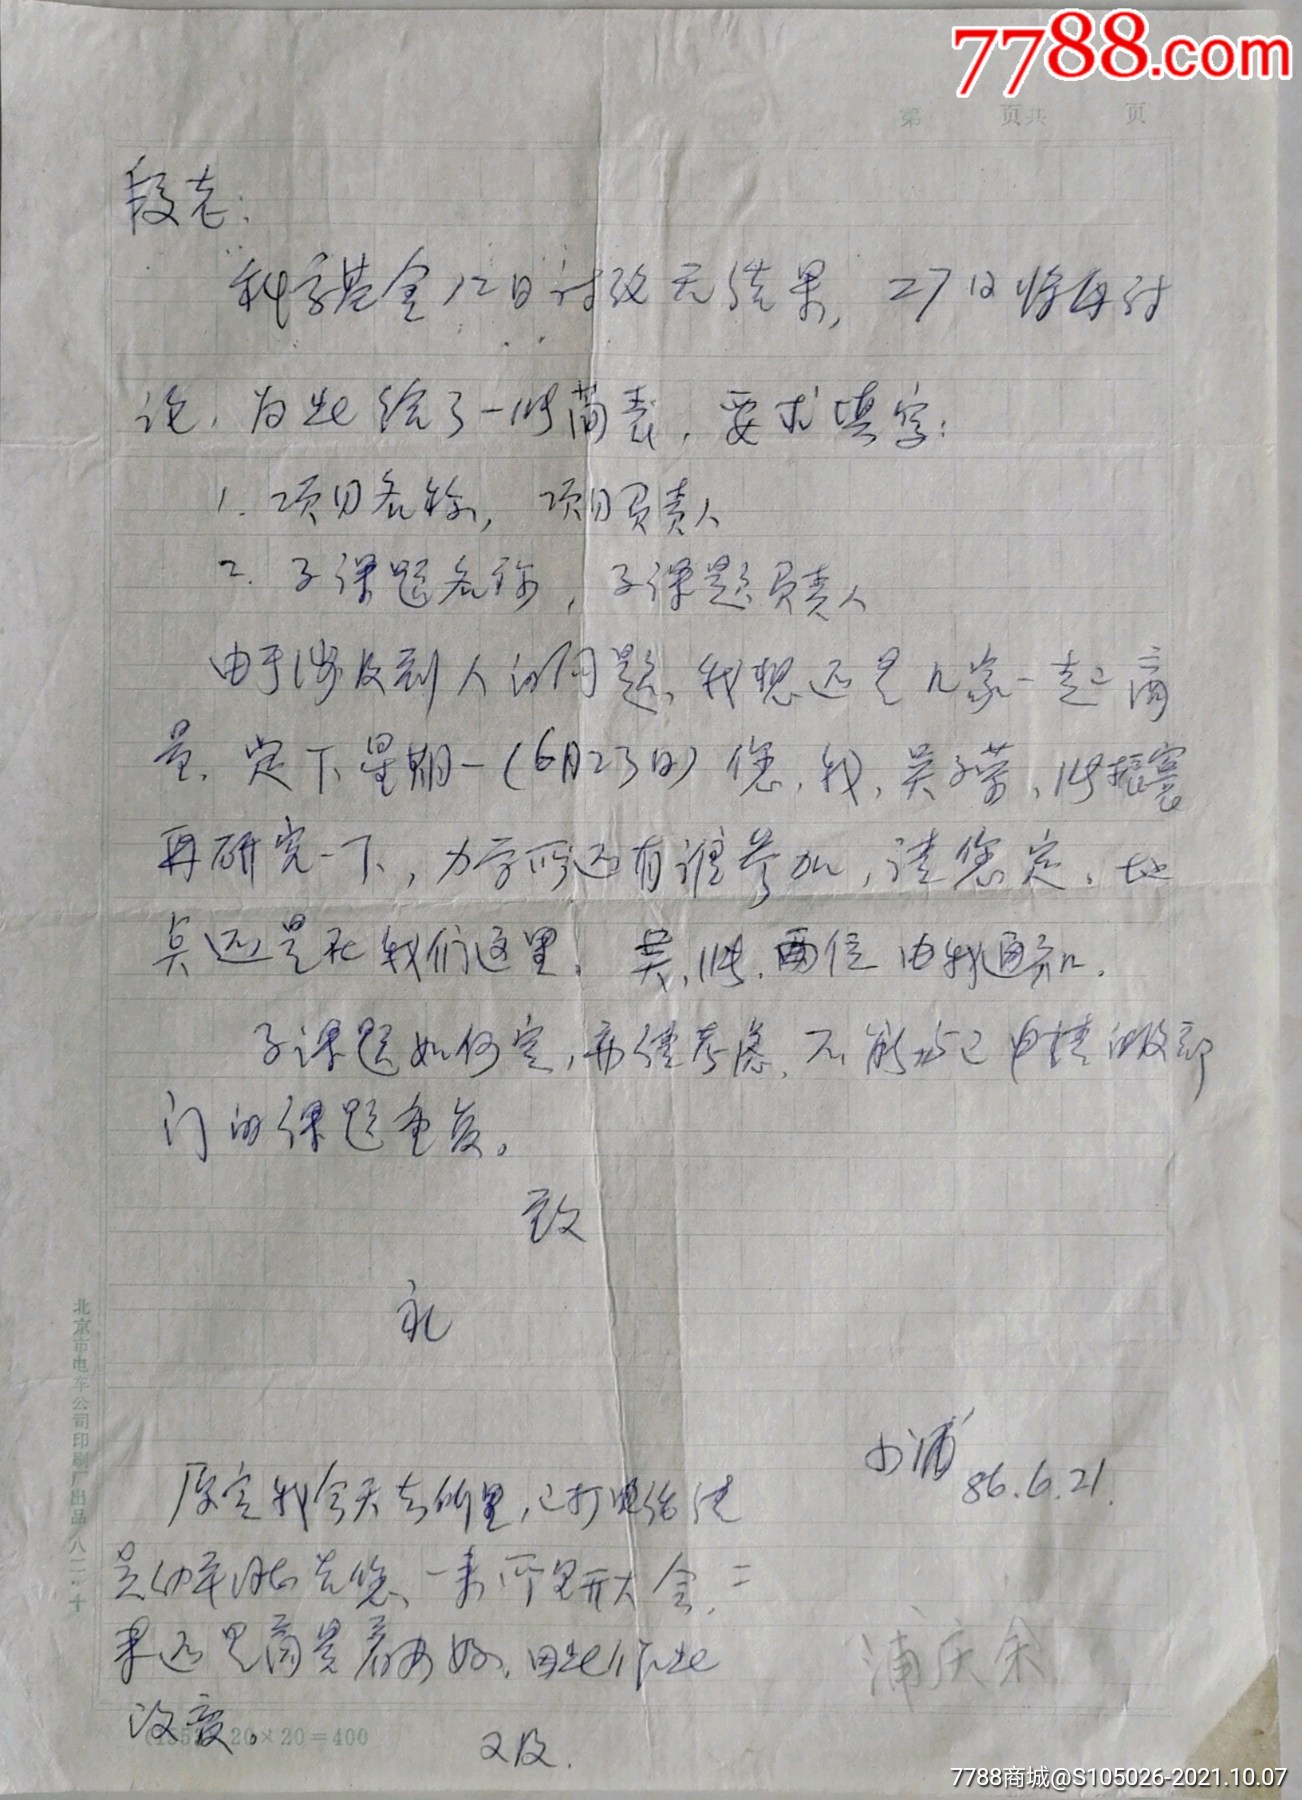 7788.com
第 页共 页
段老：
科学基金12日讨论无结果，27日将再讨
论，为此给了一张简表，要求填写：
1. 项目名称，项目负责人
2. 子课题名称，子课题负责人
由于涉及到人的问题，我想还是几家一起商
量，定下星期一（6月23日）您、我、吴子荣、张振寰
再研究一下，力学所还有谁参加，请您定，地
点还是在我们这里。吴、张两位由我通知。
子课题如何定，亦请考虑，不能与已申请的及部
门的课题重复。
致
礼
小浦
86.6.21.
原定我今天去所里，已打电话
转告您，一来所里开大会，二
来还是商量着办好，因此作此
改变。
又及.
浦庆余
北京市电车公司印刷厂出品 八二·十
20×20=400
7788商城@S105026-2021.10.07